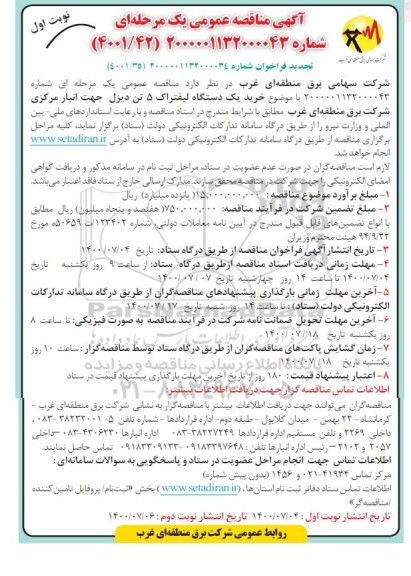 نوبت اول
آگهی مناقصه عمومی یک مرحله‌ای
شماره ۲۰۰۰۰۰۱۱۳۲۰۰۰۰۴۳ (۴۰۰۱/۴۲)
تجدید فراخوان شماره ۲۰۰۰۰۰۱۱۳۲۰۰۰۰۳۴ (۴۰۰۱/۳۵)
شرکت سهامی برق منطقه‌ای غرب در نظر دارد مناقصه عمومی یک مرحله ای شماره
۲۰۰۰۰۰۱۱۳۲۰۰۰۰۴۳ با موضوع خرید یک دستگاه لیفتراک ۵ تن دیزل جهت انبار مرکزی
شرکت برق منطقه‌ای غرب مطابق با شرایط مندرج در اسناد مناقصه و با رعایت استانداردهای ملی-بین
المللی و وزارت نیرو را از طریق درگاه سامانه تدارکات الکترونیکی دولت (ستاد) برگزار نماید، کلیه مراحل
برگزاری مناقصه از طریق درگاه سامانه تدارکات الکترونیکی دولت (ستاد) به آدرس www.setadiran.ir
انجام خواهد شد.
لازم است مناقصه‌گران در صورت عدم عضویت در ستاد، مراحل ثبت نام در سامانه مذکور و دریافت گواهی
امضای الکترونیکی را جهت شرکت در مناقصه محقق سازند. مدارک ارسالی خارج از ستاد فاقد اعتبار می‌باشد.
۱- مبلغ برآورد موضوع مناقصه: ۱۵,۰۰۰,۰۰۰,۰۰۰ (پانزده میلیارد) ریال
۲- مبلغ تضمین شرکت در فرآیند مناقصه: ۷۵۰,۰۰۰,۰۰۰ (هفتصد و پنجاه میلیون) ریال مطابق
با انواع تضمین‌های قابل قبول مندرج در آیین نامه معاملات دولتی، شماره ۱۲۳۴۰۲/ت ۵۰۶۵۹ه مورخ
۹۴/۹/۲۲ هیئت محترم وزیران
۳- تاریخ انتشار آگهی فراخوان مناقصه از طریق درگاه ستاد: تاریخ ۱۴۰۰/۰۷/۰۴
۴- مهلت زمانی دریافت اسناد مناقصه از طریق درگاه ستاد: از ساعت ۹ روز یکشنبه تاریخ
۱۴۰۰/۰۷/۰۴ تا ساعت ۱۴ روز چهارشنبه تاریخ ۱۴۰۰/۰۷/۰۷
۵- آخرین مهلت زمانی بارگذاری پیشنهادهای مناقصه‌گران از طریق درگاه سامانه تدارکات
الکترونیکی دولت (ستاد): تا ساعت ۱۴ روز شنبه تاریخ ۱۴۰۰/۰۷/۱۷
۶- آخرین مهلت تحویل ضمانت نامه شرکت در فرآیند مناقصه به صورت فیزیکی: تا ساعت ۸
روز یکشنبه تاریخ ۱۴۰۰/۰۷/۱۸
۷- زمان گشایش پاکت‌های مناقصه‌گران از طریق درگاه ستاد توسط مناقصه‌گزار: ساعت ۱۰ روز
یکشنبه تاریخ ۱۴۰۰/۰۷/۱۸
۸- اعتبار پیشنهاد قیمت: ۱۸۰ روز از تاریخ آخرین مهلت بارگذاری پیشنهاد قیمت در ستاد
اطلاعات تماس مناقصه گزار جهت دریافت اطلاعات بیشتر:
مناقصه‌گران می‌توانند جهت دریافت اطلاعات بیشتر با مناقصه‌گزار به نشانی شرکت برق منطقه‌ای غرب -
کرمانشاه - ۲۲ بهمن - میدان گلایول - طبقه دوم- اداره قراردادها - شماره تلفن ۵-۳۸۲۳۳۰۰۱-۰۸۳،
داخلی ۲۲۶۹ و تلفن مستقیم اداره قراردادها ۳۸۲۲۷۲۴۹-۰۸۳ اداره انبارها ۴۳۰۶۲۳۰-۰۸۳ –داخلی
۲۰۵۷ و ۲۰۲۱ –رئیس اداره انبارها تلفن: ۰۹۱۸۳۳۹۷۶۴۸-۰۹۱۸۳۳۰۹۱۳۳ تماس حاصل نمایند.
اطلاعات تماس جهت انجام مراحل عضویت در ستاد و پاسخگویی به سوالات سامانه‌ای:
مرکز تماس ۴۱۹۳۴-۰۲۱ و ۱۴۵۶ (بدون پیش شماره)
اطلاعات تماس ستاد دفاتر ثبت نام استان‌ها، (www.setadiran.ir) بخش «ثبت‌نام/ پروفایل تامین‌کننده
/مناقصه‌گر»
تاریخ انتشار نوبت اول: ۱۴۰۰/۰۷/۰۴ تاریخ انتشار نوبت دوم: ۱۴۰۰/۰۷/۰۶
روابط عمومی شرکت برق منطقه‌ای غرب